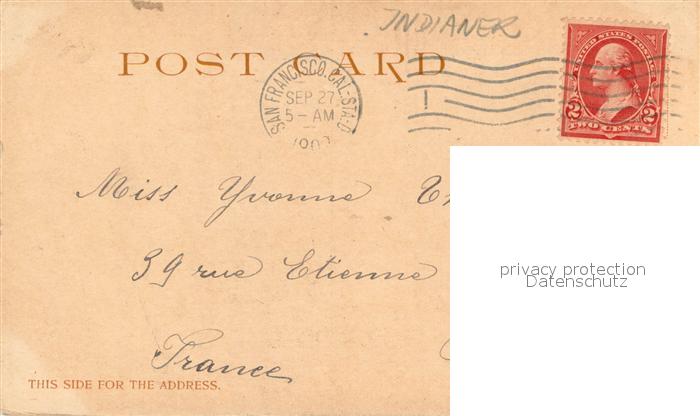 INDIANER
POST CARD
SAN FRANCISCO, CAL. STA. D
SEP 27
5 - AM
UNITED STATES POSTAGE
2 2
TWO CENTS
Miss Yvonne
39 rue Etienne
France
privacy protection
Datenschutz
THIS SIDE FOR THE ADDRESS.